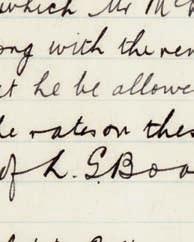 which Mr Mc
ong with the ren
t he be allowe
he rates on thes
of L. G. Boo